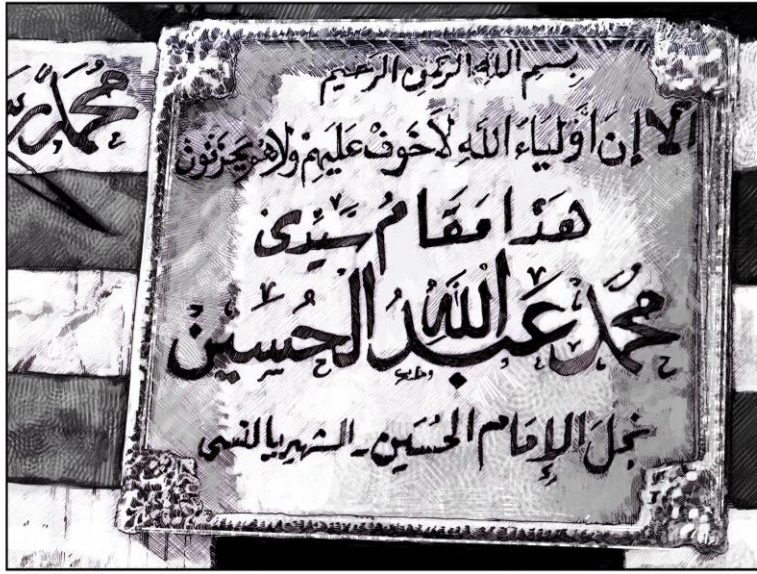 بِسْمِ اللهِ الرَّحْمٰنِ الرَّحِيمِ
أَلَا إِنَّ أَوْلِيَاءَ اللَّهِ لَا خَوْفٌ عَلَيْهِمْ وَلَا هُمْ يَحْزَنُونَ
هَذَا مَقَامُ سَيِّدِى
مُحَمَّد عَبْدُ اللَّه الْحُسَيْن
نَجْلَ الإِمَامِ الحُسَيْن - الشهير بالنسى
محمد